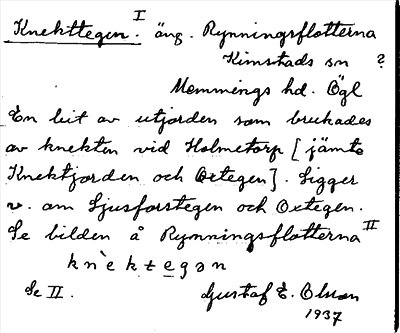 Knekttegen. I äng. Rynningsflotterna
Kimstads sn ?
Memmings hd. Ögl
En bit av utjorden som brukades
av knekten vid Holmetorp [jämte
Knektjorden och Oxtegen]. Ligger
v. om Ljusforstegen och Oxtegen.
Se bilden å Rynningsflotterna II
knèktegən
Se II. Gustaf E. Olsson
1937